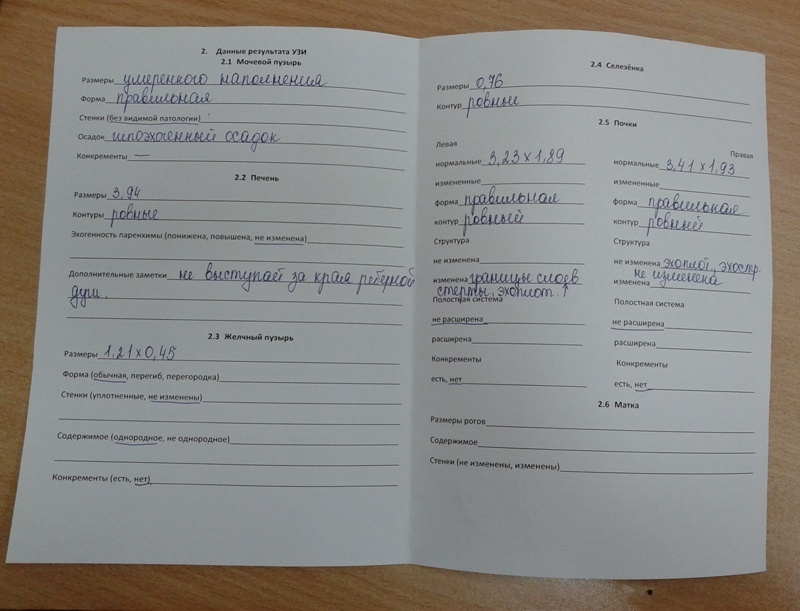 2. Данные результата УЗИ
2.1 Мочевой пузырь
Размеры умеренного наполнения
Форма правильная
Стенки (без видимой патологии)
Осадок гипоэхогенный осадок
Конкременты —
2.2 Печень
Размеры 3,94
Контуры ровные
Эхогенность паренхимы (понижена, повышена, не изменена)
Дополнительные заметки не выступает за края реберной
дуги.
2.3 Желчный пузырь
Размеры 1,21 х 0,45
Форма (обычная, перегиб, перегородка)
Стенки (уплотненные, не изменены)
Содержимое (однородное, не однородное)
Конкременты (есть, нет)
2.4 Селезёнка
Размеры 0,76
Контур ровные
2.5 Почки
Левая
нормальные 3,23 х 1,89
измененные
форма правильная
контур ровный
Структура
не изменена
изменена границы слоев
стерты, эхоплот. ↑
Полостная система
не расширена
расширена
Конкременты
есть, нет
Правая
нормальные 3,41 х 1,93
измененные
форма правильная
контур ровный
Структура
не изменена эхоплот., эхостр.
изменена не изменена
Полостная система
не расширена
расширена
Конкременты
есть, нет
2.6 Матка
Размеры рогов
Содержимое
Стенки (не изменены, изменены)